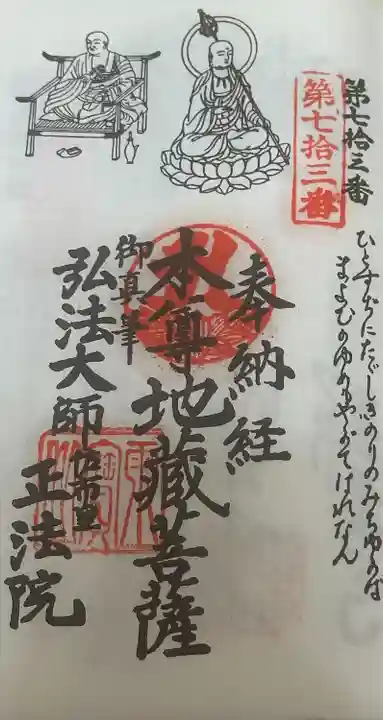 第七拾三番
第七拾三番
ひとすぢにたゞしきのりのみちゆかば
まよひのゆめもやがてはれなん
奉納経
本尊地蔵菩薩
御真筆
弘法大師
正法院